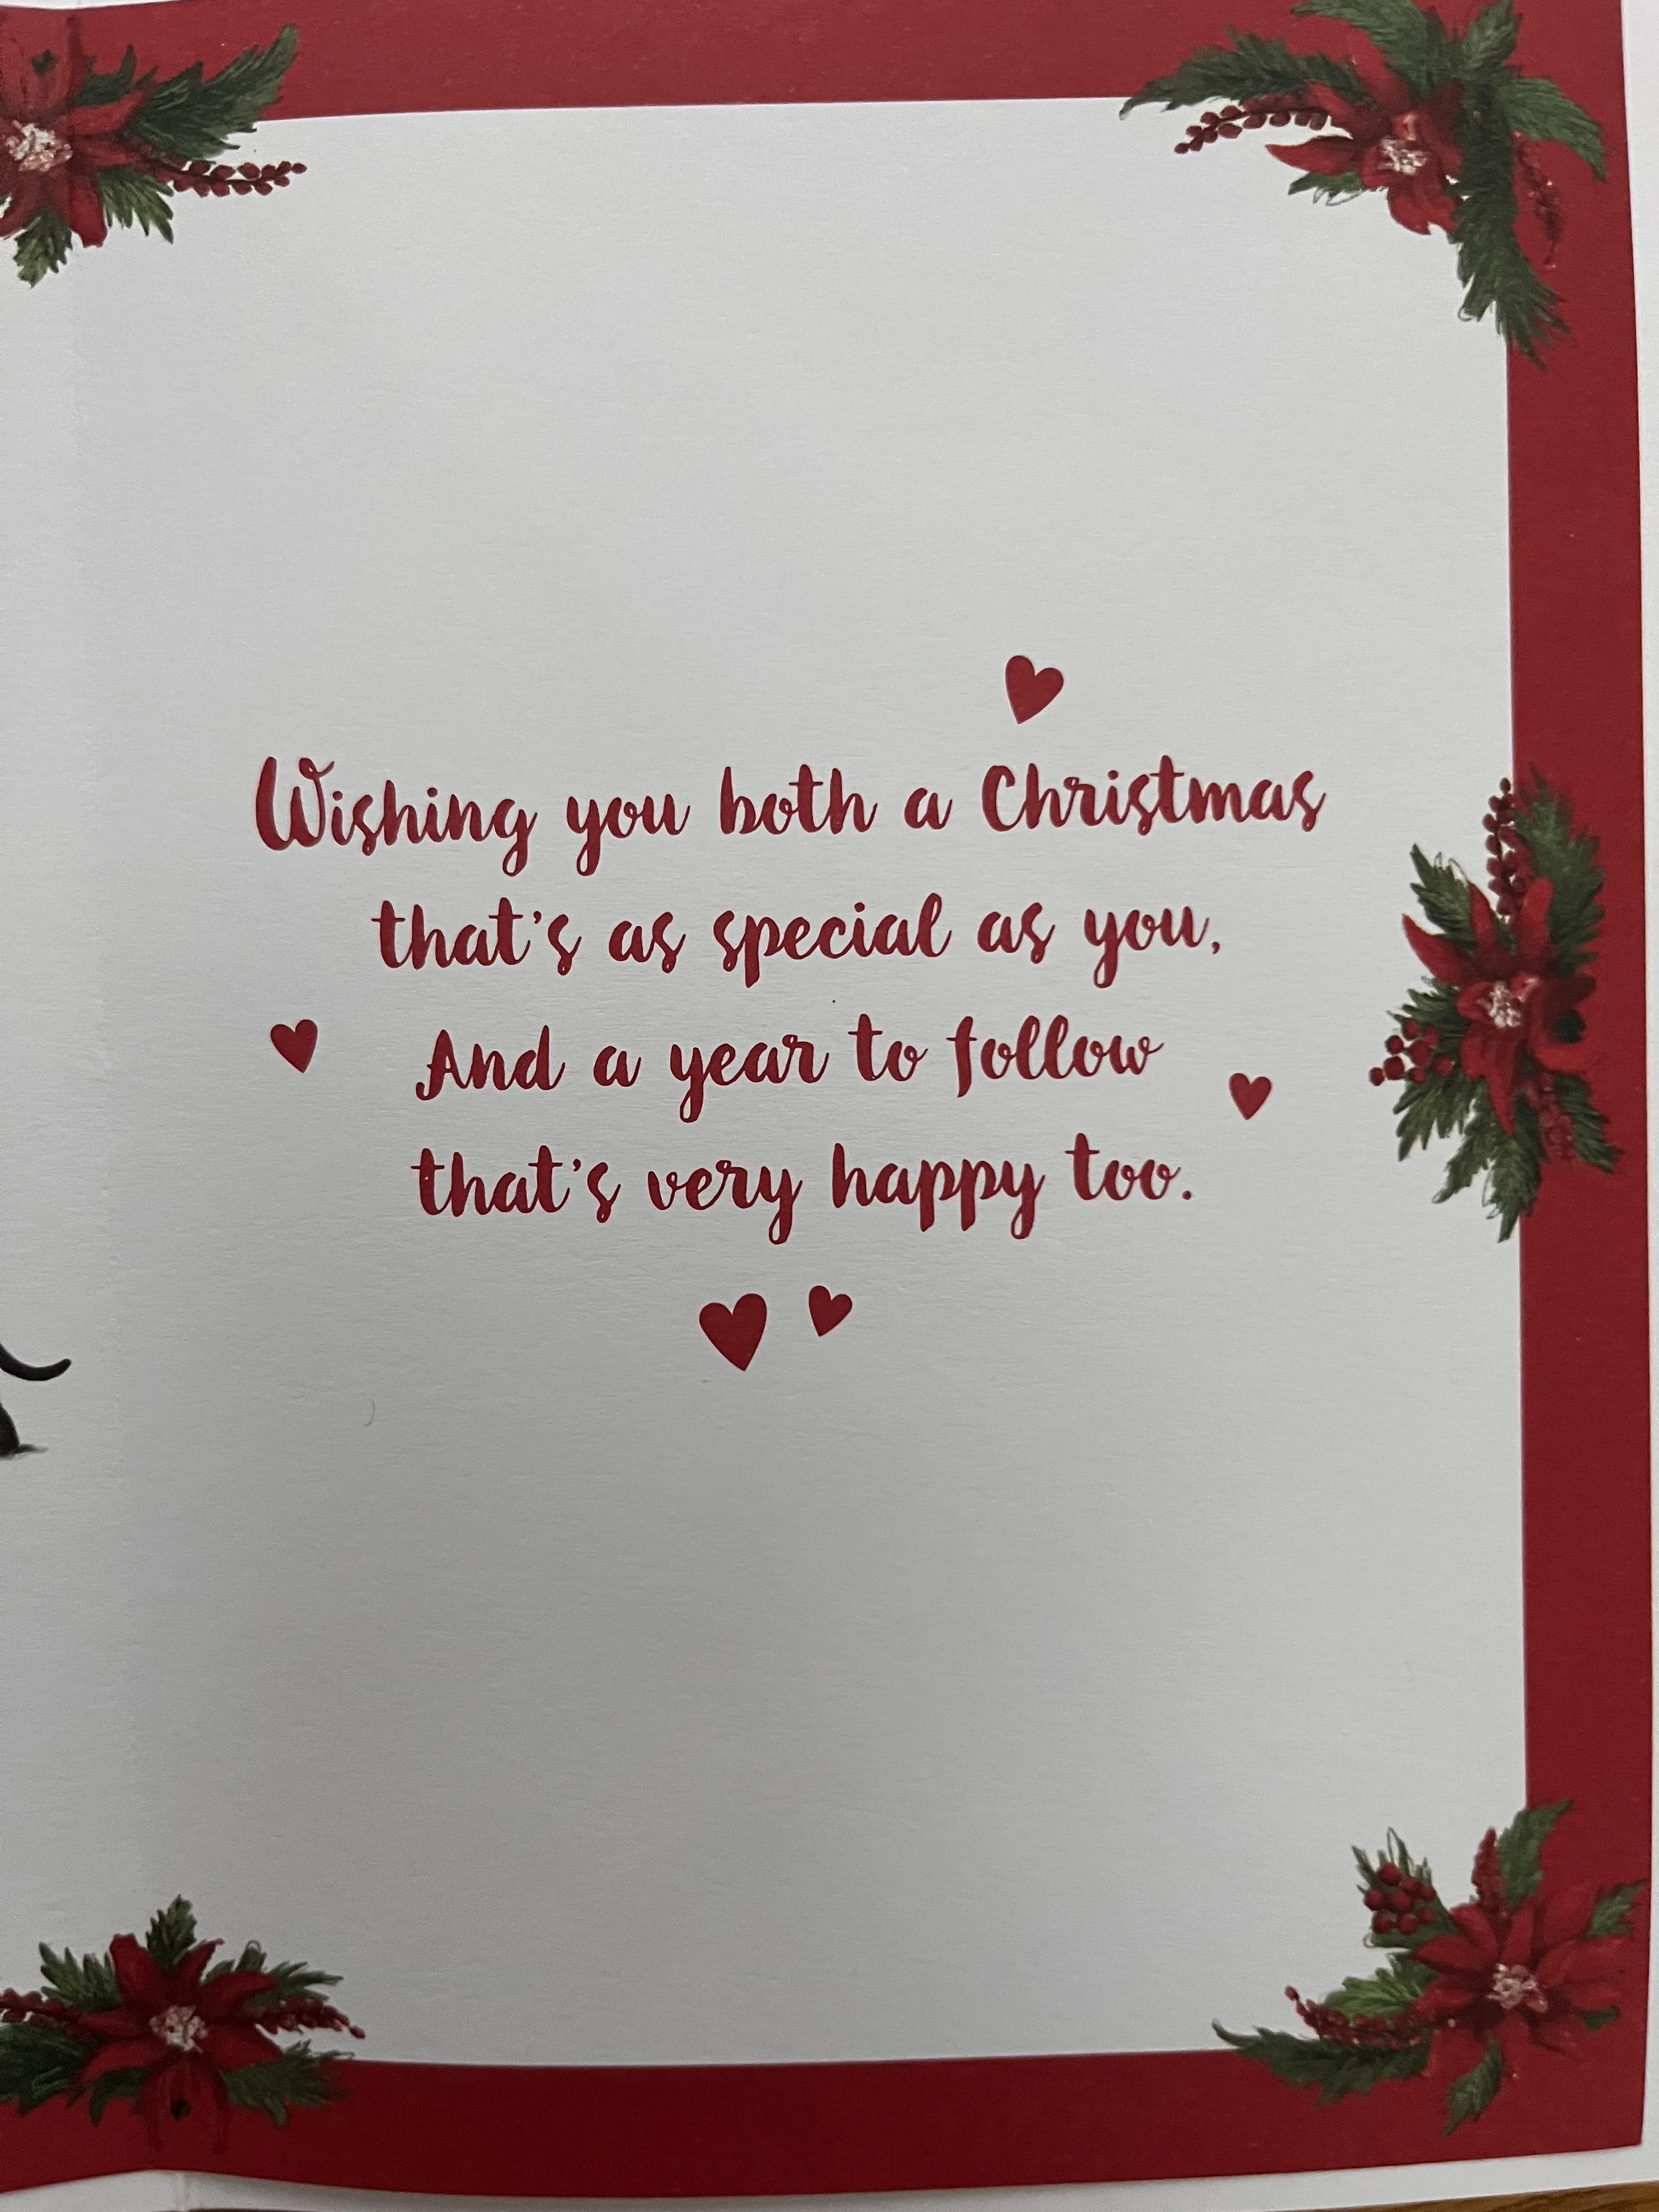 Wishing you both a Christmas
that's as special as you,
And a year to follow
that's very happy too.